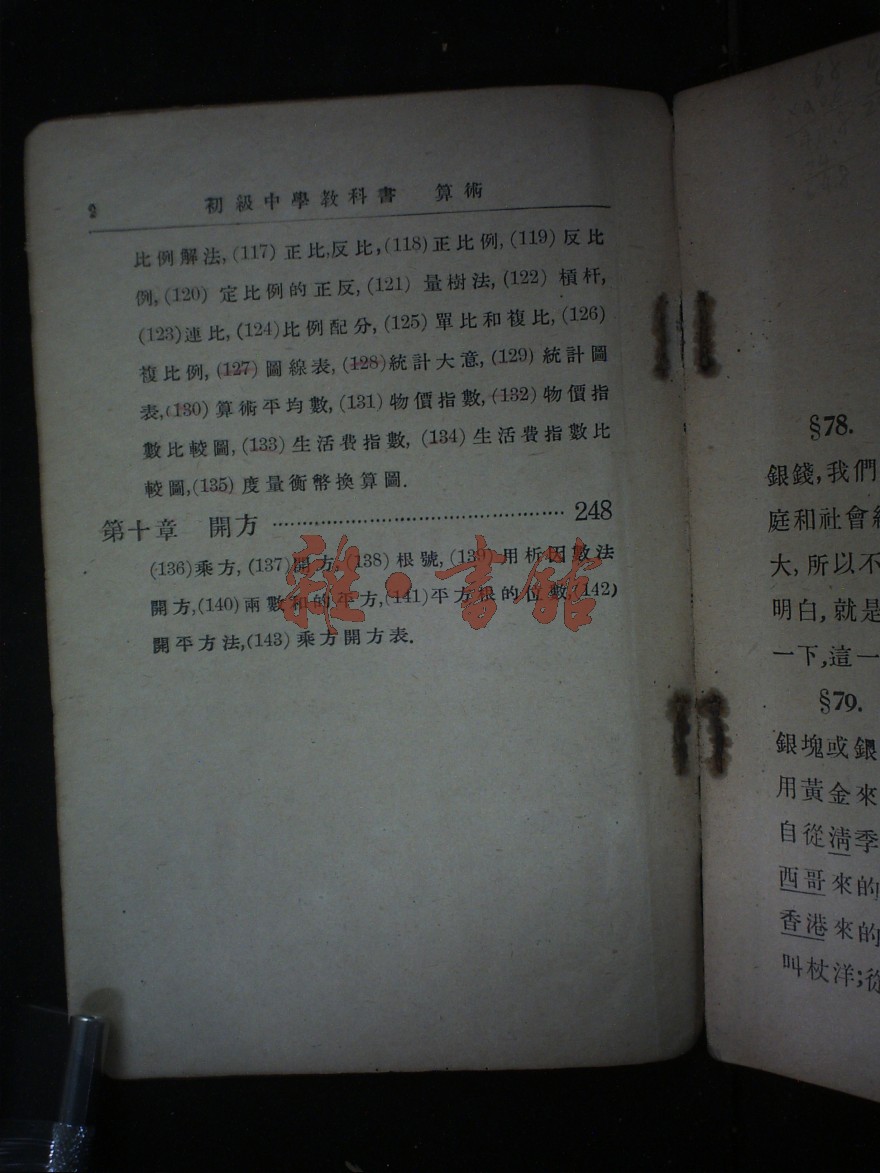 2 初級中學教科書 算術
比例解法,(117) 正比,反比,(118)正比例,(119)反比
例,(120) 定比例的正反,(121) 量樹法,(122) 槓杆,
(123)連比,(124)比例配分,(125)單比和複比,(126)
複比例,(127)圖線表,(128)統計大意,(129)統計圖
表,(130)算術平均數,(131)物價指數,(132)物價指
數比較圖,(133)生活費指數,(134)生活費指數比
較圖,(135)度量衡幣換算圖.
第十章 開方 ………………………………… 248
(136)乘方,(137)開方,(138)根號,(139)用析因數法
開方,(140)兩數和的平方,(141)平方根的位數,(142)
開平方法,(143)乘方開方表.
雜·書館
§78.
銀錢,我們
庭和社會
大,所以不
明白,就是
一下,這一
§79.
銀塊或銀
用黃金來
自從清季
西哥來的
香港來的
叫杖洋;從